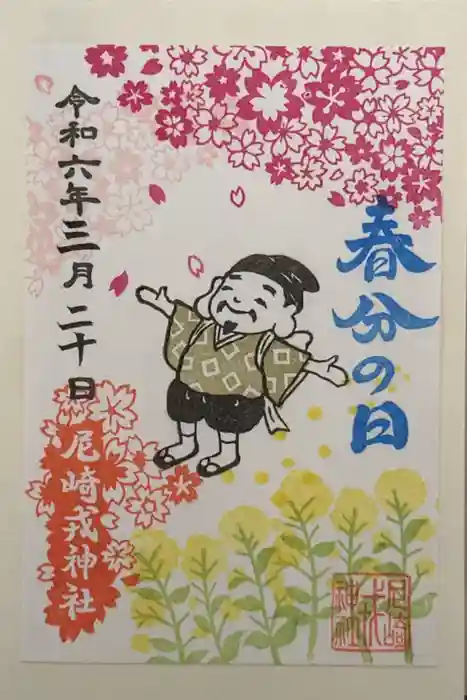 春分の日
令和六年三月二十日
尼崎戎神社
尼崎
戎
神社